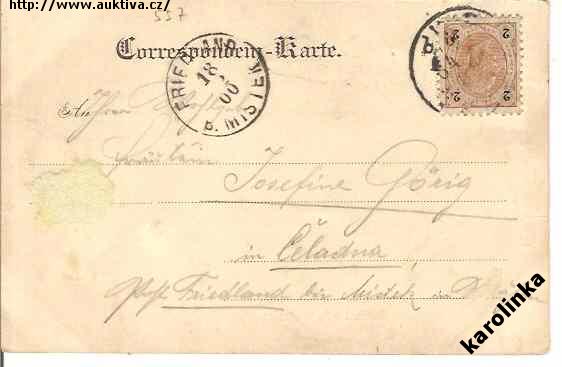 http://www.auktiva.cz/
557
Correspondenz-Karte.
FRIEDLAND
18
00
b. MISTEK
2 2
2 2
An
Fräulein
Josefine Görig
in Čeladna
Post Friedland bei Mistek in
karolinka